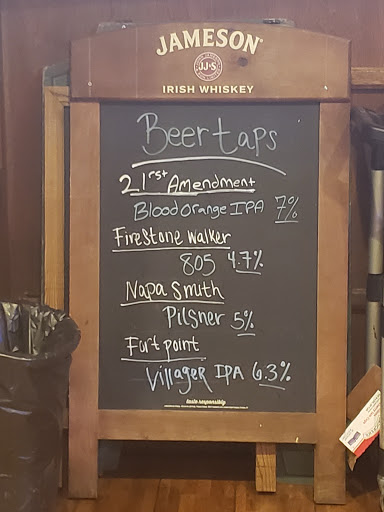 JAMESON
JJ&S
IRISH WHISKEY
Beer taps
21rst Amendment
Blood Orange IPA 7%
FireStone Walker
805 4.7%
Napa Smith
Pilsner 5%
Fort point
Villager IPA 6.3%
taste responsibly